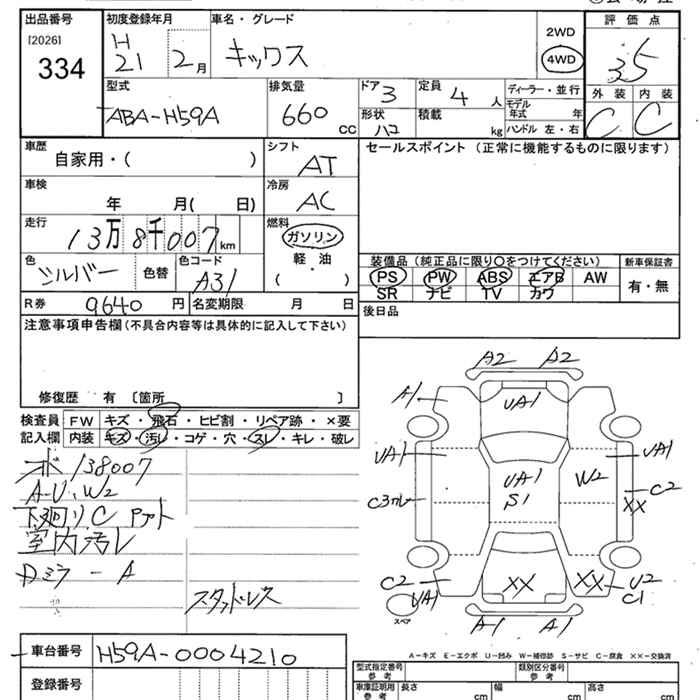 出品番号 初度登録年月 車名・グレード 評価点
[2026] H 21 2月 キックス 2WD 3.5
334 4WD
型式 排気量 ドア 定員 ディーラー・並行 外装 内装
ABA-H59A 660 CC 3 4人 モデル年式 年 C C
形状 ハコ 積載 kg ハンドル 左・右
車歴 シフト セールスポイント (正常に機能するものに限ります)
自家用・( ) AT
車検 冷房
年 月( 日) AC
走行 燃料
13万8千007km ガソリン
色 色コード 軽・油
シルバー 色替 A31 ( )
装備品 (純正品に限り○をつけてください) 新車保証書
PS PW ABS エアB AW 有・無
SR ナビ TV カワ
R券 9640円 名変期限 月 日 後日品
注意事項申告欄 (不具合内容等は具体的に記入して下さい)
修復歴 有 〔箇所 〕
検査員 FW キズ・飛石・ヒビ割・リペア跡・×要
記入欄 内装 キズ・汚レ・コゲ・穴・スレ・キレ・破レ
138007
A・U、W2
下廻りC Pアト
室内汚レ
Dミラ - A
スタッドレス
A2 A2
A1 UA1
UA1 UA1
UA1 W2
S1 C2
C3カレー XX
C2 XX XX U2
UA1 C1
スペア A1 A1
A-キズ E-エクボ U-凹み W-補修跡 S-サビ C-腐食 XX-交換済
車台番号 H59A-0004210
登録番号
型式指定番号 参考 類別区分番号 参考
車庫証明用 参考 長さ cm 幅 cm 高さ cm